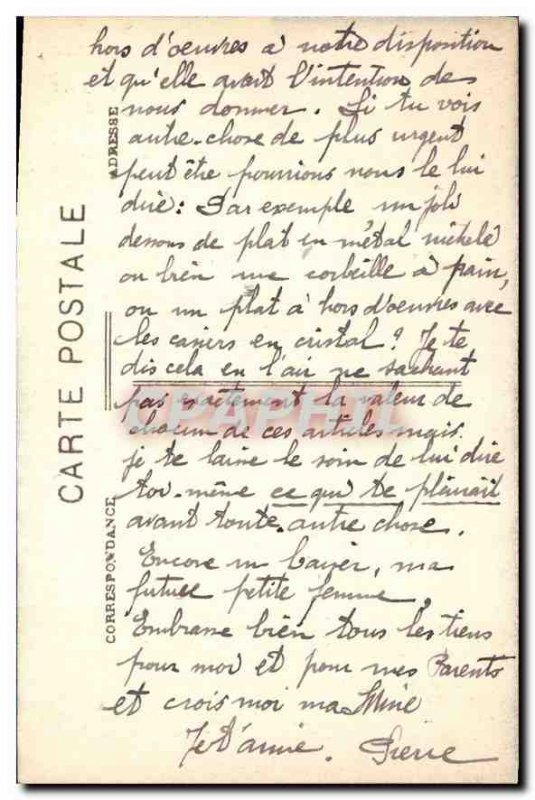 hors d'oeuvres à notre disposition
et qu'elle avait l'intention de
nous donner. Si tu vois
autre-chose de plus urgent
peut être pourrions nous le lui
dire : Par exemple un joli
dessous de plat en métal nickelé
ou bien une corbeille à pain,
ou un plat à hors d'oeuvres avec
les casiers en cristal ? Je te
dis cela en l'air ne sachant
pas exactement la valeur de
chacun de ces articles mais
je te laisse le soin de lui dire
toi-même ce qui te plairait
avant toute-autre chose.
Encore un baiser, ma
future petite femme,
Embrasse bien tous les tiens
pour moi et pour mes Parents
et crois moi ma Mine
Je t'aime. Pierre
CARTE POSTALE
ADRESSE
CORRESPONDANCE